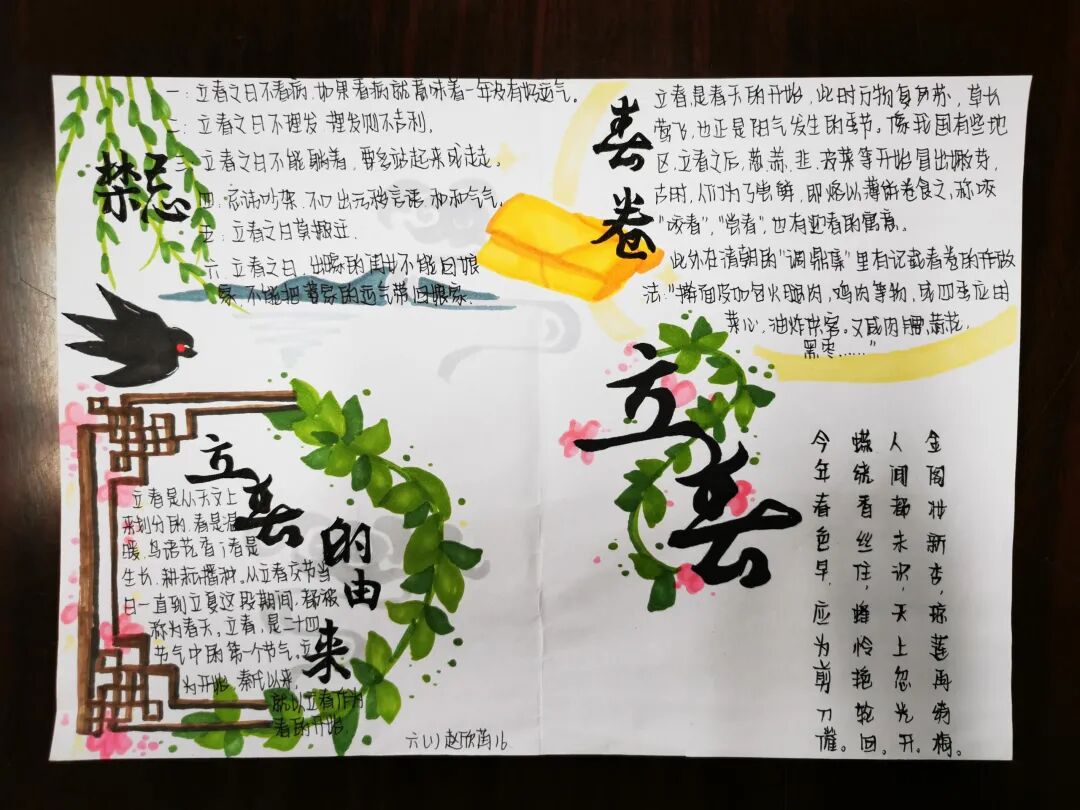 禁忌
一:立春之日不看病.如果看病就意味着一年没有好运气。
二:立春之日不理发.理发则不吉利.
三:立春之日不能躺着,要多站起来或走走。
四:忌讳吵架,不口出污秽言语,和和气气。
五:立春之日莫搬迁.
六:立春之日,出嫁的闺女不能回娘
家,不能把婆家的运气带回娘家.
春卷
立春,是春天的开始,此时万物复苏,草长
莺飞,也正是阳气发生的季节。像我国有些地
区,立春之后,葱、蒜、韭、菠菜等开始冒出嫩芽,
古时,人们为了尝鲜,即烙以薄饼卷食之,称以
“咬春”,“尝春”,也有迎春的寓意。
此外在清朝的“调鼎集”里有记载春卷的作做
法:“擀面皮加包火腿肉,鸡肉等物,或四季应用
菜心,油炸供客。又咸肉腰、蒜花、
黑枣……”
立春
立春的由来
立春是从天文上
来划分的.春是温
暖,鸟语花香;春是
生长,耕耘播种,从立春交节当
日一直到立夏这段期间,都被
称为春天。立春,是二十四
节气中的第一个节气。立
为开始,秦代以来,
就以立春作为
春的开始.
金阁妆新杏,琼莲再绮梅。
人间都未识,天上忽光开。
蝶绕香丝住,蜂怜艳粉回。
今年春色早,应为剪刀催。
六(1)赵欣茜16